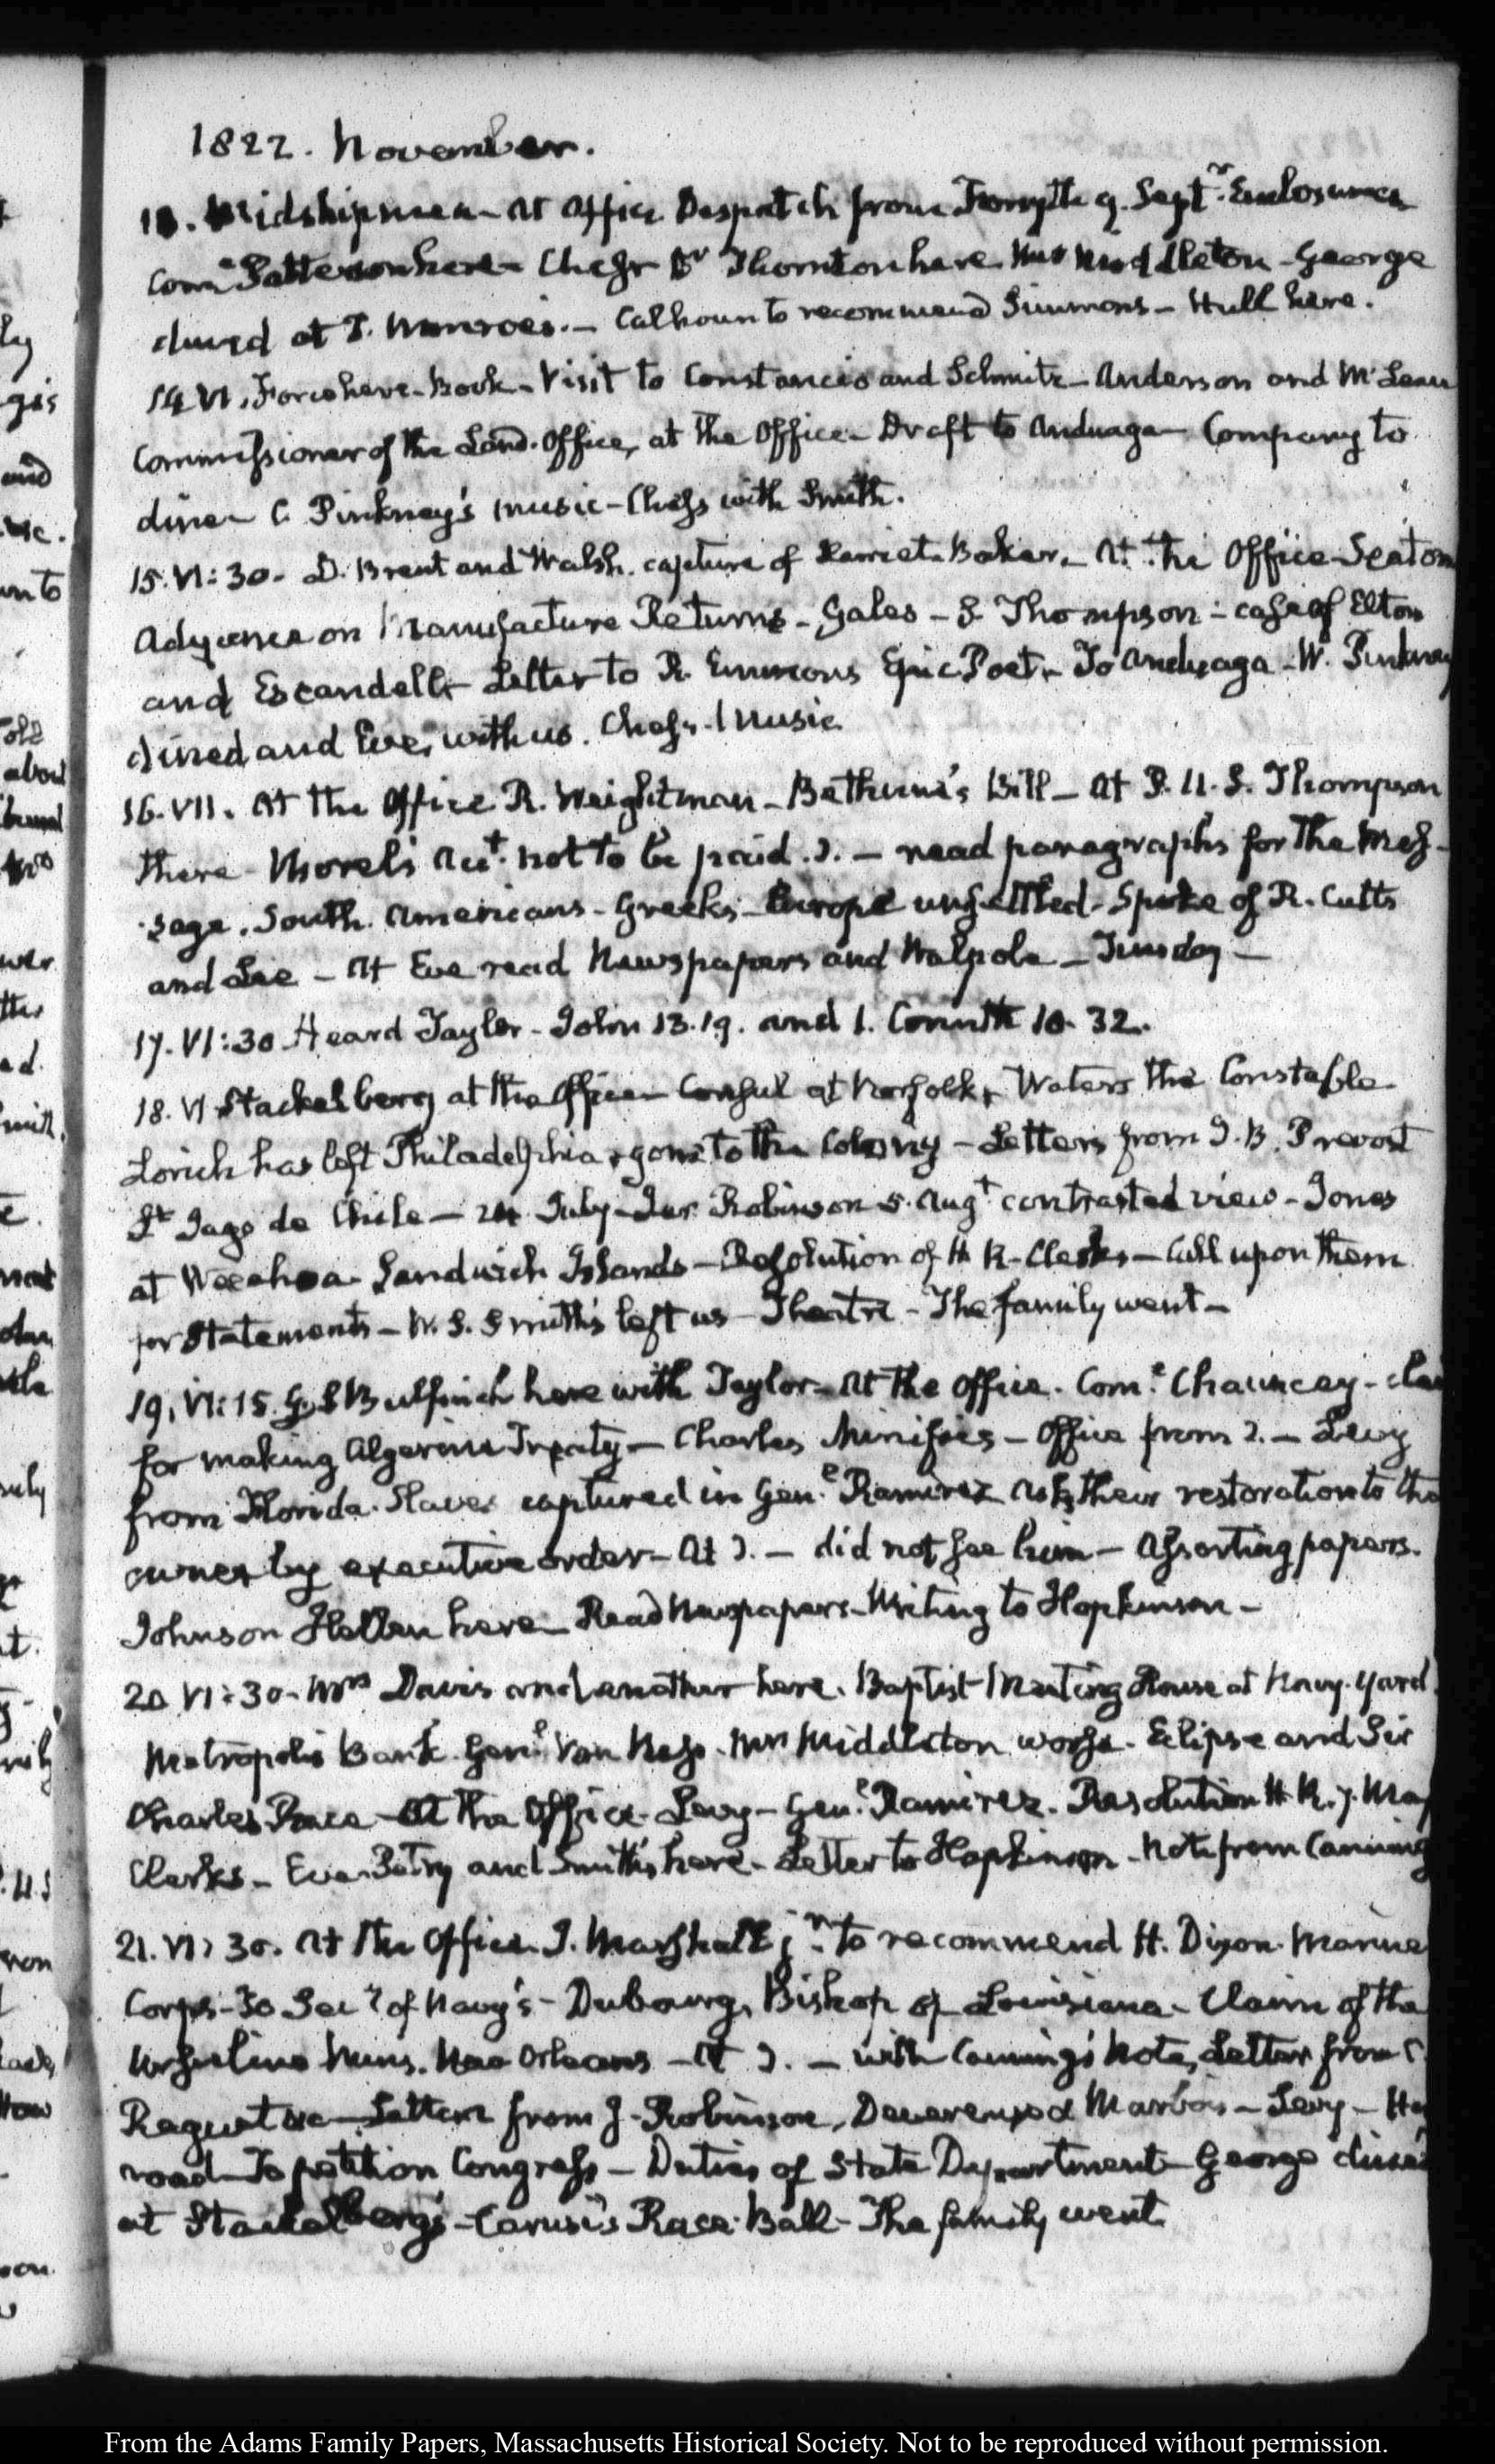 1822. November.
Midshipmen - At Office Despatch from Forsyth 9. Septr. Enclosures
Come. Patterson here - Chess Dr Thornton here Mrs Middleton - George
dined at J. Monroe's. - Calhoun to recommend Simmons - Hull here.
14 VI. Force here - Book - Visit to Constancio and Schmitz - Anderson and McLean
Commissioner of the Land-Office, at the Office - Draft to Anduaga - Company to
dine - C. Pinkney's music - Chess with Smith.
15. VI:30 - D. Brent and Walsh. capture of Harriet Baker - At the Office - Seaton
on Manufacture Returns - Gales - S. Thompson - case of Elton
and Escandell - Letter to R. Emmons Epic Poet - To Anduaga - W. Pinkney
dined and Eve. with us. Chess - Music
16. VII. At the Office R. Weightman - Bethune's Bill - At P. U.S. Thompson
there - Morel's Acct. not to be paid. - read paragraphs for the Mes-
sage. South Americans - Greeks - Europe unsettled - Spoke of R. Cutts
and Lee - At Eve read Newspapers and Walpole - Tuesday -
17. VI:30 Heard Taylor - John 13.19. and 1. Corinth 10. 32.
18. VI Stackelberg at the Office - Consul at Norfolk, Waters the Constable
Lorich has left Philadelphia, gone to the Colony - Letters from J. B. Prevost
St Jago de Chile - 24 July - Jer. Robinson 5. Augt contrasted view - Jones
at Sandwich Islands - Resolution of H R - Clerks - Call upon them
for Statements - W. S. Smith's left us - Theatre - The family went -
19. VI:15. G. S Bulfinch here with Taylor - At the Office. Come. Chauncey -
for making Algerine Treaty - Charles Minifies - Office from - Levy
from Florida. Slaves captured in Genl. Ramirez Ask their restoration to the
owner by executive order - At - did not see him - Assorting papers.
Johnson Hellen here - Read Newspapers - Writing to Hopkinson -
20 VI:30 - Mrs Davis and another here. Baptist Meeting House at Navy-Yard.
Metropolis Bank Genl. Van Ness - Mrs Middleton worse - Eclipse and Sir
Charles Race - At the Office - Levy - Genl. Ramirez. Resolution H. R. 7. May
Clerks - Eve. Betsy and Smith's here - Letter to Hopkinson - Note from Canning
21. VI:30. At the Office. J. Marshall jr. to recommend H. Dixon Marine
Corps - To Secy of Navy's - Dubourg, Bishop of Louisiana - Claim of the
Ursuline Nuns. New Orleans - At - with Canning's Note, Letter from C.
Raguet &c - Letters from J. Robinson, Devereux and Marbois - Levy - He
read To petition Congress - Duties of State Department - George dined
at Stackelberg's - Carusi's Race Ball - The family went
From the Adams Family Papers, Massachusetts Historical Society. Not to be reproduced without permission.